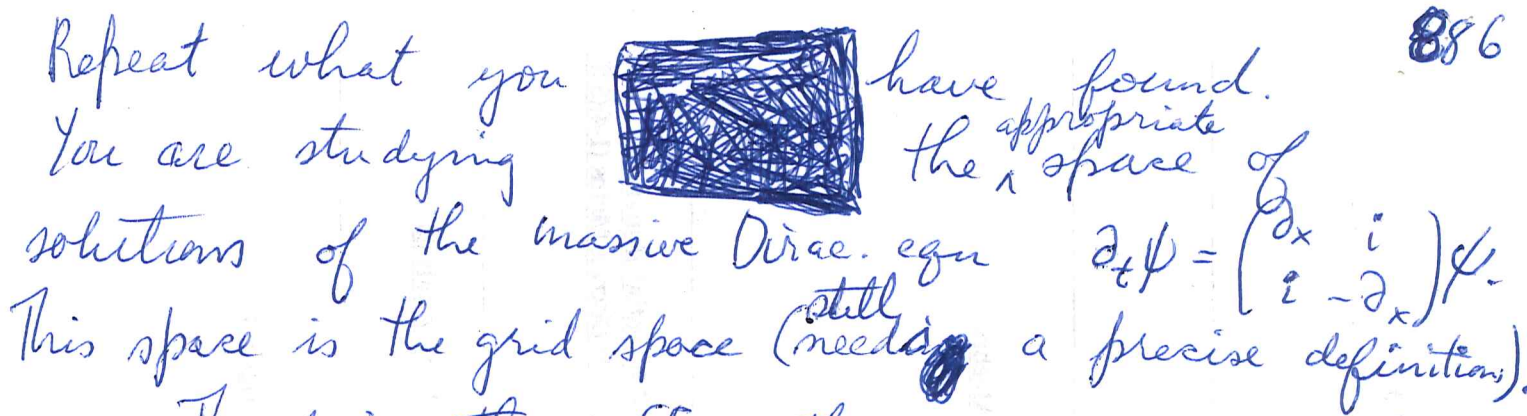 886
Repeat what you have found.
You are studying the appropriate space of
solutions of the massive Dirac. equ ∂_t ψ = ( ∂_x i ; i -∂_x ) ψ.
This space is the grid space (still needing a precise definition).